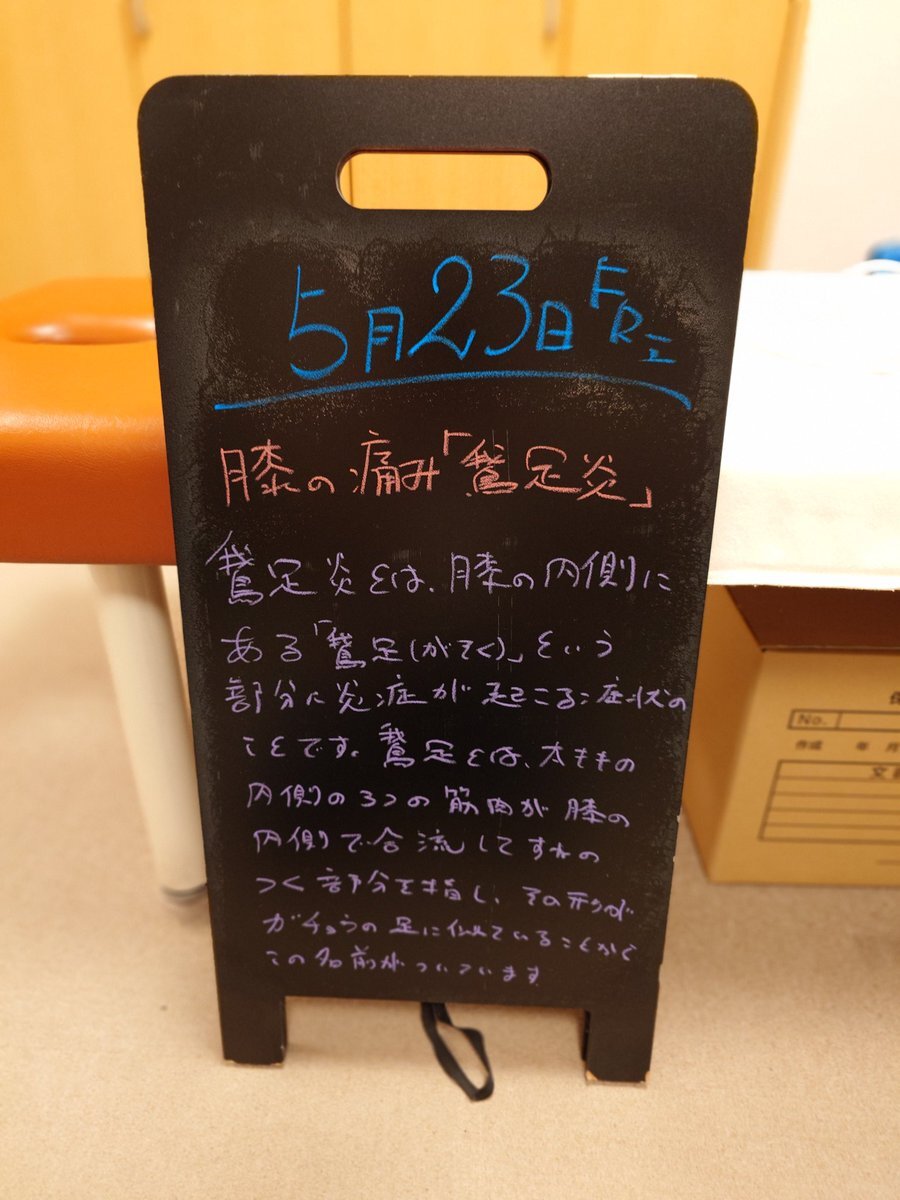 5月23日 FRI
膝の痛み「鵞足炎」
鵞足炎とは、膝の内側に
ある「鵞足(がそく)」という
部分に炎症が起こる症状の
ことです。鵞足とは、太ももの
内側の3つの筋肉が膝の
内側で合流してすねの
つく部分を指し、その形が
ガチョウの足に似ていることから
この名前がついています
No.
作成 年 月
文